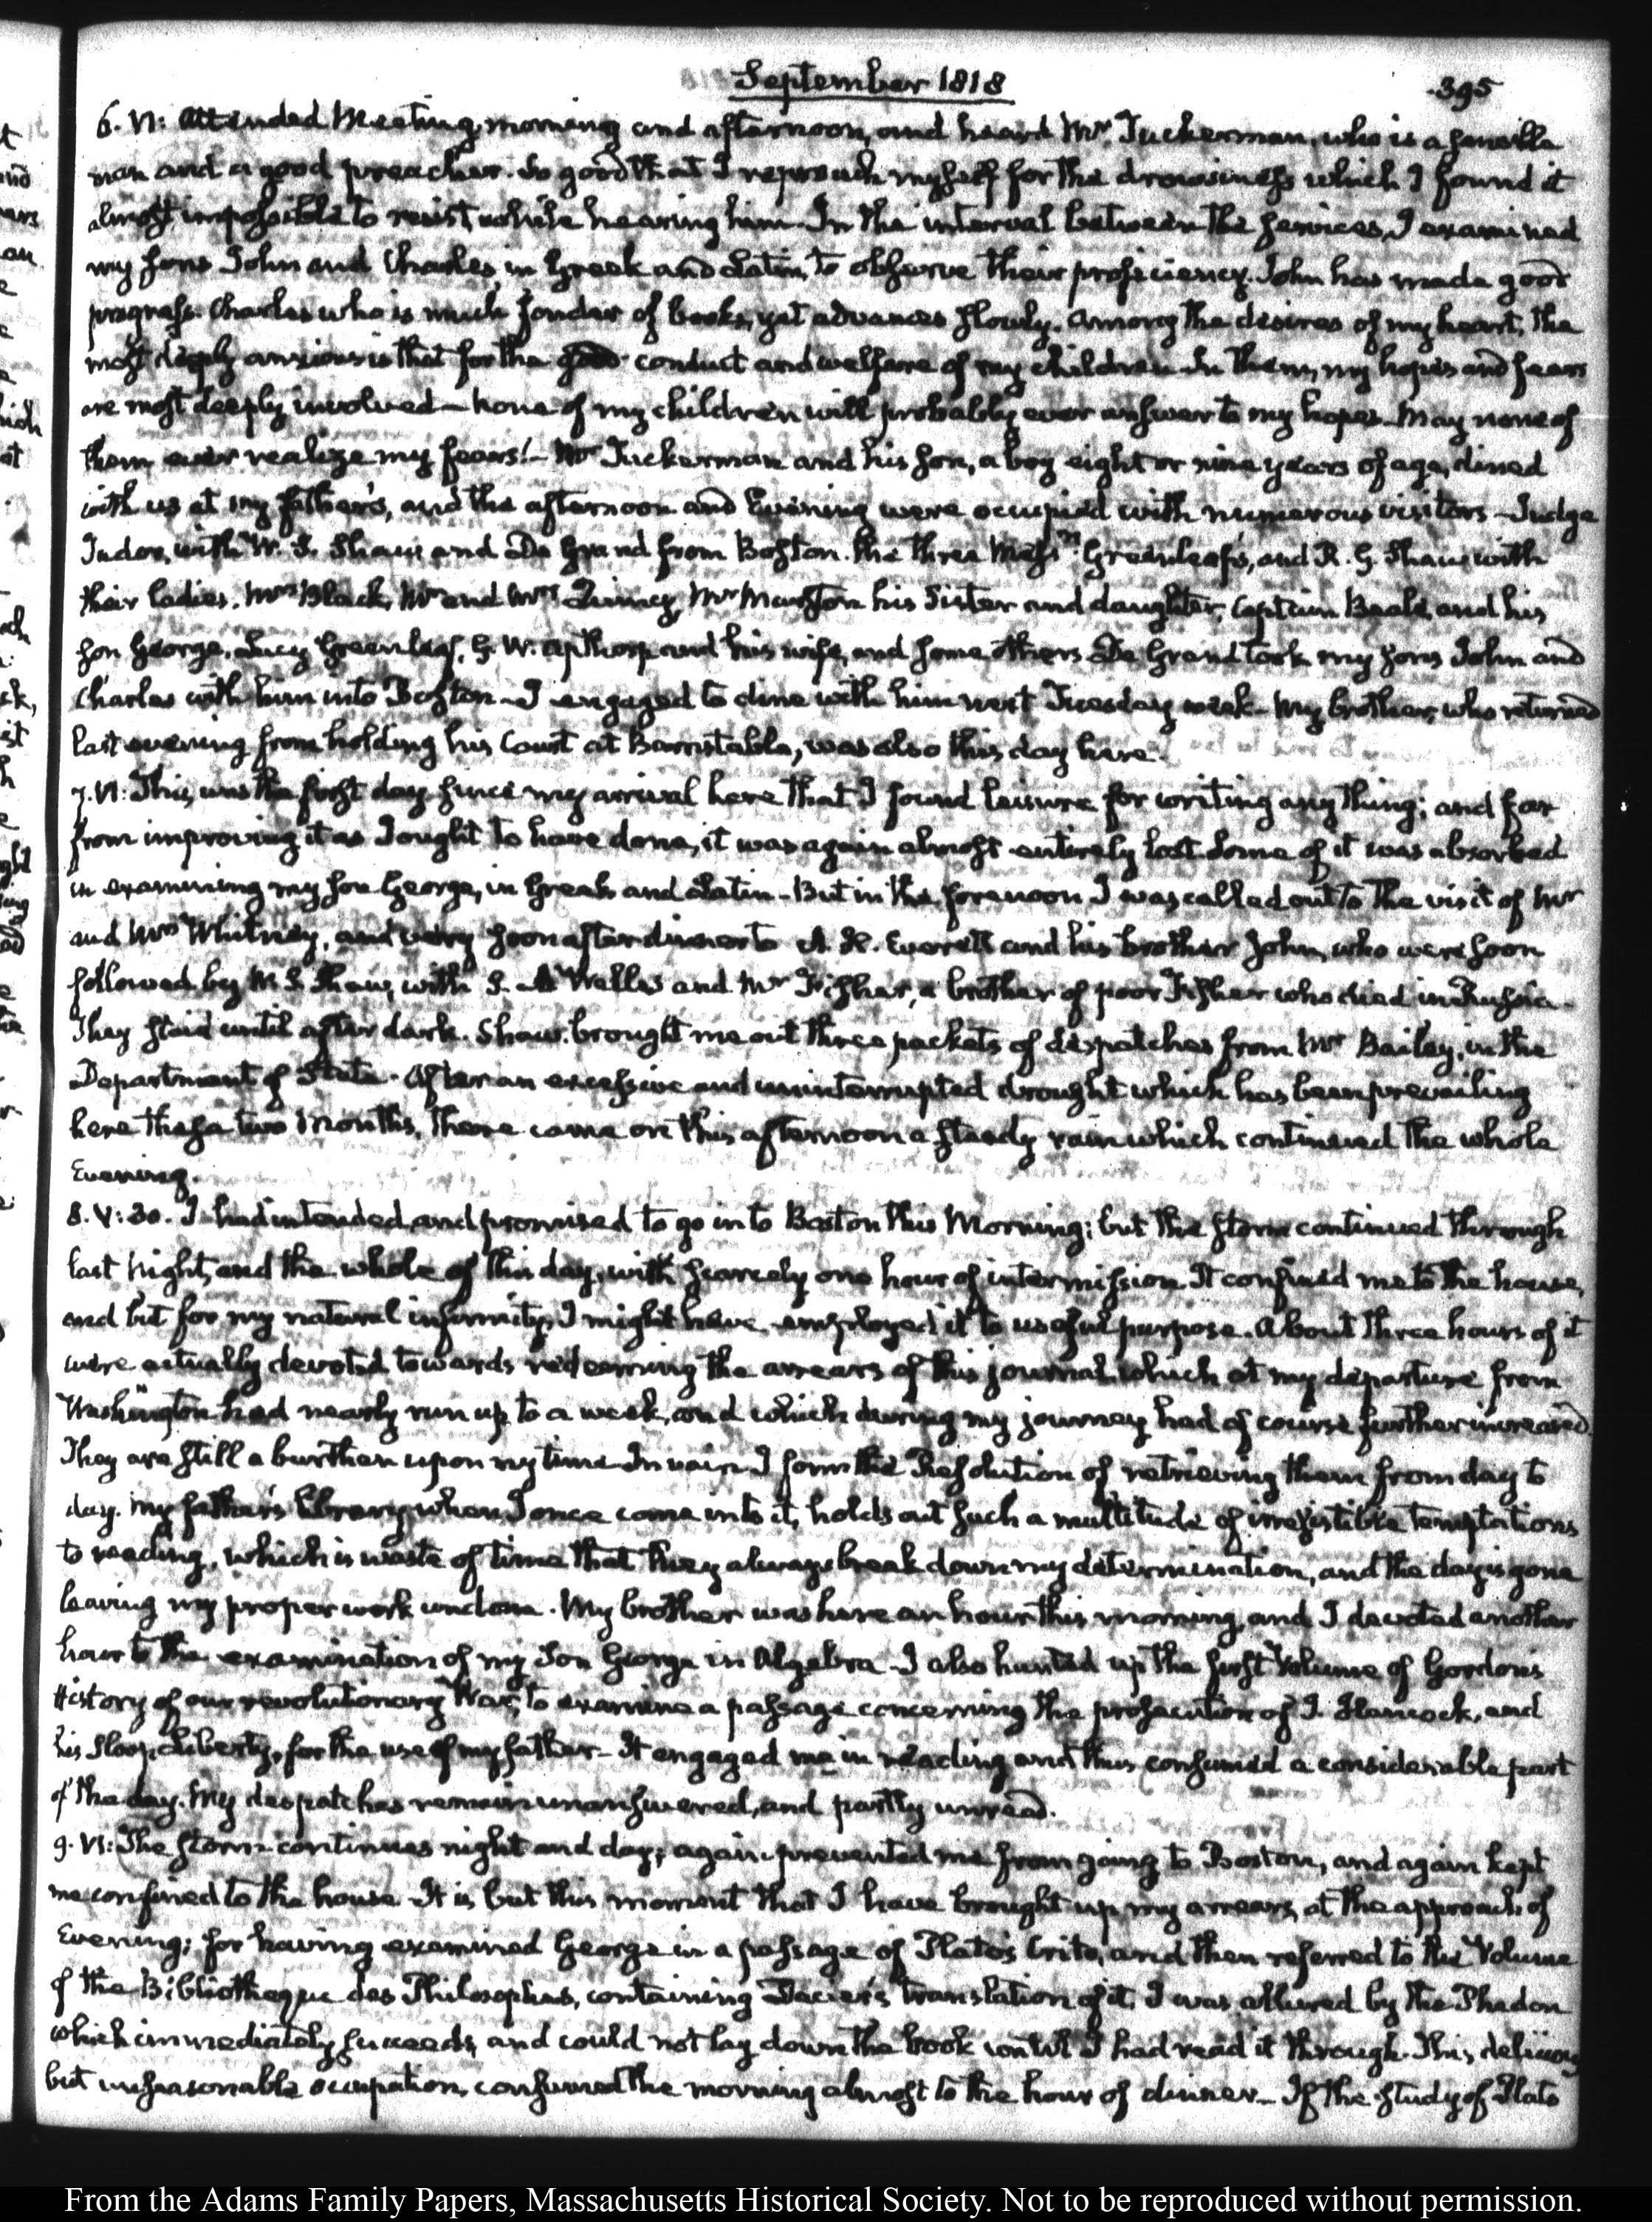 September 1818
395
6. VI: Attended Meeting, morning and afternoon, and heard Mr. Tuckerman, who is a sensible
man and a good preacher. So good that I reproach myself for the drowsiness which I found it
almost impossible to resist while hearing him. In the interval between the services, I examined
my sons John and Charles, in Greek and Latin, to observe their proficiency. John has made good
progress. Charles who is much fonder of books, yet advances slowly. Among the desires of my heart, the
most deeply anxious is that for the good conduct and welfare of my children. In them, my hopes and fears
are most deeply involved — None of my children will probably ever answer to my hopes. May none of
them ever realize my fears! — Mr Tuckerman and his son, a boy eight or nine years of age, dined
with us at my father's, and the afternoon and Evening were occupied with numerous visitors — Judge
Tudor, with W. S. Shaw and De Grand from Boston. The three Messrs. Greenleaf's, and R. G. Shaw with
their ladies. Mrs Black, Mr and Mrs Quincy, Mr Marston his Sister and daughter, Captain Beale, and his
son George, Lucy Greenleaf, G. W. Apthorp and his wife, and some others. De Grand took my sons John and
Charles with him into Boston — I engaged to dine with him next Tuesday week. My brother, who returned
last evening from holding his Court at Barnstable, was also this day here.
7. VI: This was the first day since my arrival here that I found leisure for writing any thing; and far
from improving it as I ought to have done, it was again almost entirely lost. Some of it was absorbed
in examining my son George, in Greek and Latin — But in the forenoon I was called out to the visit of Mr
and Mrs Whitney, and very soon after dinner to A. H. Everett and his brother John, who were soon
followed by W. S. Shaw, with S. A Welles and Mr Fisher, a brother of poor Fisher who died in Russia.
They staid until after dark. Shaw brought me out three packets of despatches from Mr Bailey, in the
Department of State. After an excessive and uninterrupted drought which has been prevailing
here these two Months, there came on this afternoon a steady rain which continued the whole
Evening.
8. V: 30. I had intended and promised to go into Boston this Morning; but the storm continued through
last Night, and the whole of this day, with scarcely one hour of intermission. It confined me to the house,
and but for my natural infirmity, I might have employed it to useful purpose. About three hours of it
were actually devoted towards redeeming the arrears of this journal which at my departure from
Washington had nearly run up to a week, and which during my journey had of course further increased.
They are still a burthen upon my time. In vain I form the Resolution of retrieving them from day to
day. My father's library, when I once come into it, holds out such a multitude of irresistible temptations
to reading, which is waste of time that they always break down my determination, and the day is gone
leaving my proper work undone. My brother was here an hour this morning, and I devoted another
hour to the examination of my Son George in Algebra — I also hunted up the first Volume of Gordon's
History of our revolutionary War, to examine a passage concerning the prosecution of J. Hancock, and
his Sloop Liberty, for the use of my father — It engaged me in reading and thus consumed a considerable part
of the day. My despatches remain unanswered, and partly unread.
9. VI: The storm continues night and day; again prevented me from going to Boston, and again kept
me confined to the house. It is but this moment that I have brought up my arrears, at the approach of
Evening; for having examined George in a passage of Plato's Crito, and then referred to the Volume
of the Bibliotheque des Philosophes, containing Dacier's translation of it, I was allured by the Phedon
which immediately succeeds, and could not lay down the book until I had read it through. This delicious
but unseasonable occupation, consumed the morning almost to the hour of dinner — If the study of Plato
From the Adams Family Papers, Massachusetts Historical Society. Not to be reproduced without permission.